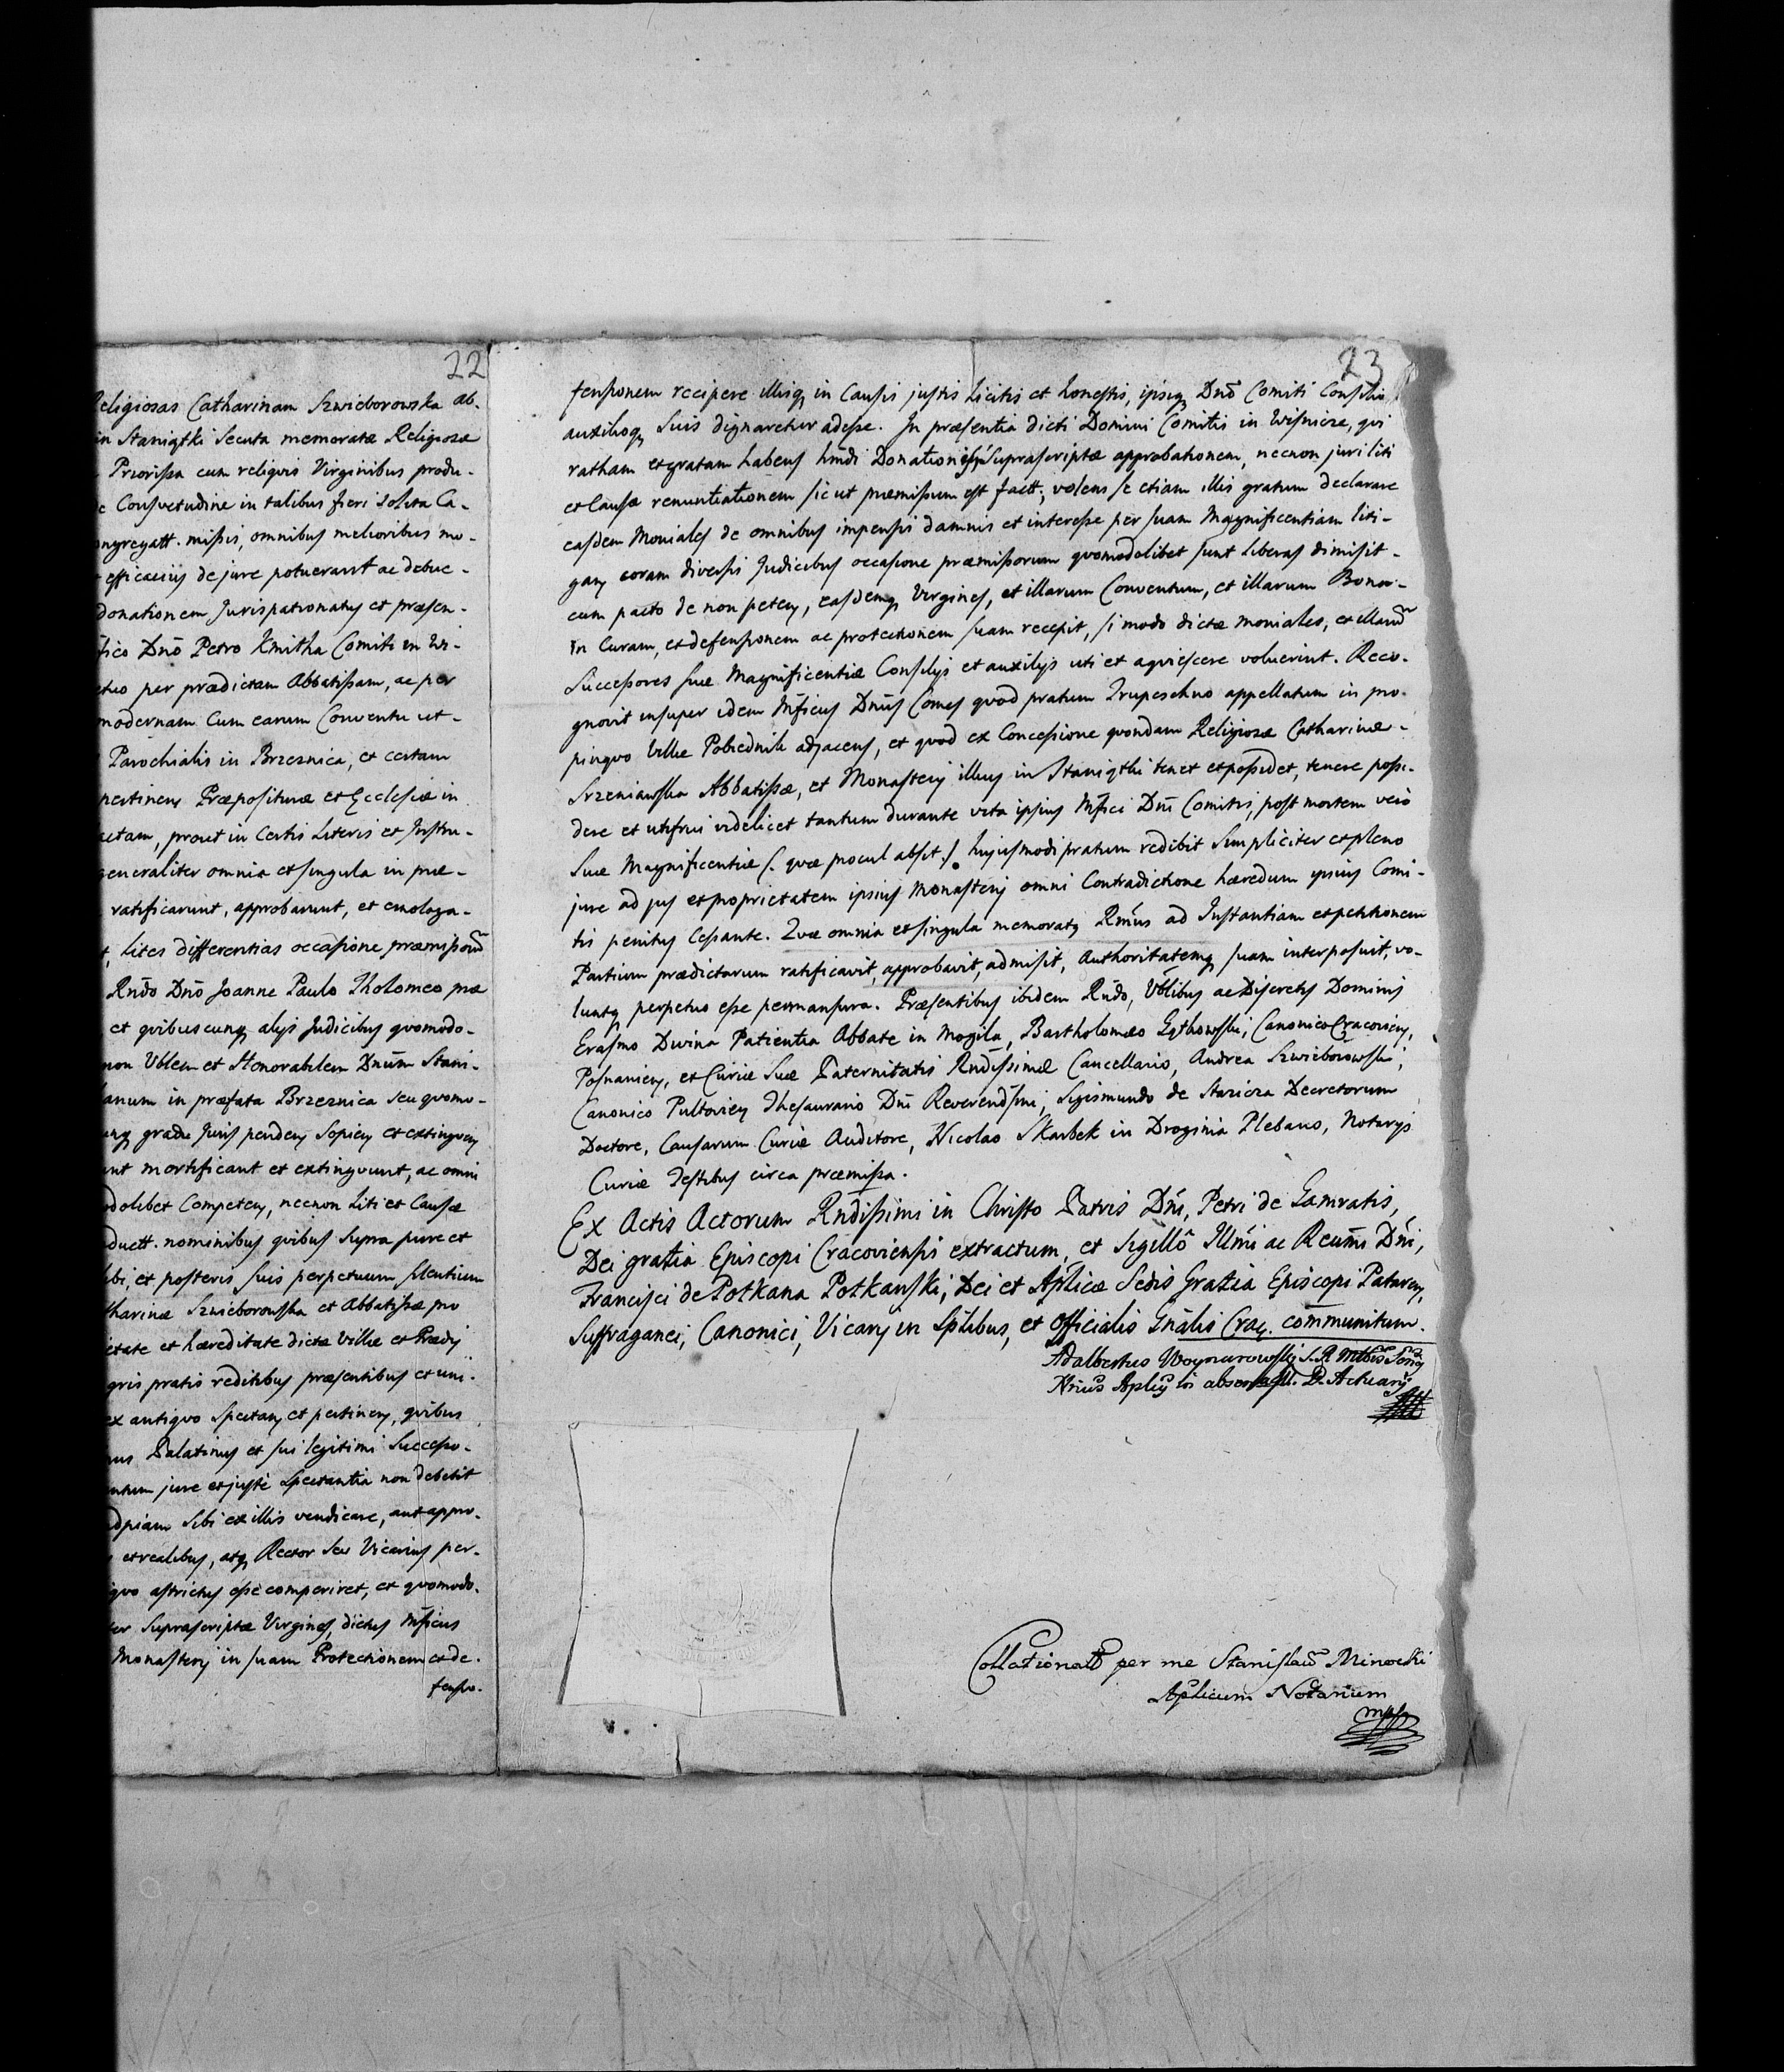 22
Religiosas Catharinam Szwieborowska ab-
in Staniątki Secuta memoratæ Religiosæ
Priorissa cum reliquis Virginibus produ-
Consvetudine in talibus fieri solita Ca-
ongregatt. missis, omnibus melioribus mo-
efficacius de jure potuerant ac debue-
donationem Jurispatronatus et præsen-
fico Dnō Petro Kmitha Comiti in Wi-
etuo per prædictam Abbatissam, ac per
modernam cum earum Conventu ut-
Parochialis in Brzeznica, et certam
pertinen Præposituræ et Ecclesiæ in
ctam, prout in Certis Literis et Instru-
generaliter omnia et singula in præ-
ratificarunt, approbarunt, et emologa-
t, lites differentias occasione præmissorū
Rndo Dnō Joanne Paulo Tholomeo præ
et quibuscunq alijs Judicibus quomodo-
non Vblem et Honorabilem Dnūm Stani-
anum in præfata Brzeznica seu quomo-
unq gradu Juris penden Sopien et extinguen
unt mortificant et extingvunt, ac omni
odolibet Competen, necnon Liti et Causæ
duett. nominibus quibus supra pure et
ibi, et posteris suis perpetuum silentium
tharinæ Szwieborowska et Abbatissæ pro
etate et hæreditate dictæ Villæ et Prædij
gris pratis reditibus præsentibus et uni-
ex antiquo Spectan et pertinen, quibus
nus Palatinus et sui legitimi Successo-
ntum jure et juste Spectantia non debebit
dpiam sibi ex illis vendicare, aut appro-
et realibus, atq Rector seu Vicarius per-
quo astrictus esse comperiret, et quomodo-
ter Suprascriptæ Virgines, dictus Mficus
Monasterij in suam Protectionem et de-
fensio-
23
fensionem recipere illisq in Causis justis Licitis et honestis, ipsiq Dnō Comiti Consilio
auxilioq Suis dignaretur adesse. In præsentia dicti Domini Comitis in Wisnicze, qui
ratham et gratam habens hmōdi Donationis Suprascriptæ approbationem, necnon juri liti
et Causæ renuntiationem sic ut præmissum est factt; volens se etiam illis gratum declarare
easdem Moniales de omnibus impensis damnis et interesse per suam Magnificentiam liti-
gan coram diversis Judicibus occasione præmissorum quomodolibet sunt liberas dimisit-
cum pacto de non peten, easdemq Virgines, et illarum Conventum, et illarum Bona-
in Curam, et defensionem ac protectionem suam recepit, si modo dictæ moniales, et illarū
Successores suæ Magnificentiæ Consilijs et auxilijs uti et aquiescere voluerint. Reco-
gnovit insuper idem Mficus Dnūs Comes quod pratum Trupieschno appellatum in pro-
pinquo Villæ Pobiednik adjacens, et quod ex Concessione quondam Religiosæ Catharinæ-
Srzeniawska Abbatissæ, et Monasterij illius in Staniątki tenet et possidet, tenere possi-
dere et utifrui videlicet tantum durante vita ipsius Mfici Dnī Comitis, post mortem vero
Suæ Magnificentiæ /. quæ procul absit ./ hujusmodi pratum redibit Simpliciter et pleno
jure ad jus et proprietatem ipsius Monasterij omni Contradictione hæredum ipsius Comi-
tis penitus Cessante. Quæ omnia et singula memoratq Rmus ad Instantiam et petitionem
Partium prædictarum ratificavit, approbavit, admisit, Authoritatemq suam interposuit, vo-
luntq perpetuo esse permansura. Præsentibus ibidem Rndo, Vblibus ac Discretis Dominis
Erasmo Divina Patientia Abbate in Mogila, Bartholomæo Gąthowski, Canonico Cracovien,
Posnanien, et Curiæ Suæ Paternitatis Rndissimæ Cancellario, Andrea Szwieborowski,
Canonico Pultovien Thesaurario Dnī Reverendsmi, Sigismundo de Stazicza Decretorum
Doctore, Causarum Curiæ Auditore, Nicolao Skarbek in Droginia Plebano, Notarijs
Curiæ Testibus circa præmissa.
Ex Actis Actorum Rndissimi in Christo Patris Dni, Petri de Gamratis,
Dei gratia Episcopi Cracoviensis extractum, et Sigillô Illmi ac Reumi Dni,
Francisci de Potkana Potkanski, Dei et Aplicæ Sedis Gratia Episcopi Pataren,
Suffraganei, Canonici, Vicarij in Splibus, et Officialis Gnâlis Crac. communitum.
Adalbertus Woynarowski S. R
Nrius Aplicus in absen D. Actuarij
Collationatt per me Stanislaū Minocki
Aplicum Notarium
mpp